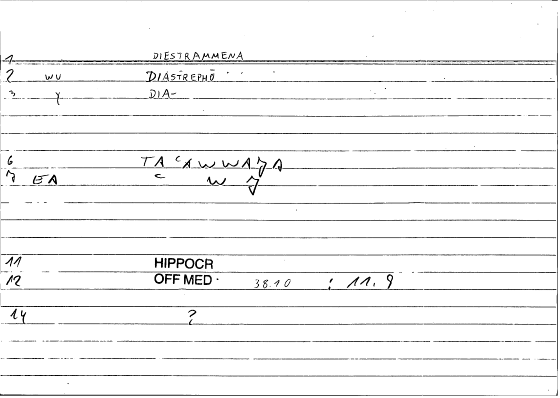 1 DIESTRAMMENA
2 wu DIASTREPHŌ
3 y DIA-
6
7 EA
11 HIPPOCR
12 OFF MED. 38.10 : 11.9
14 ?